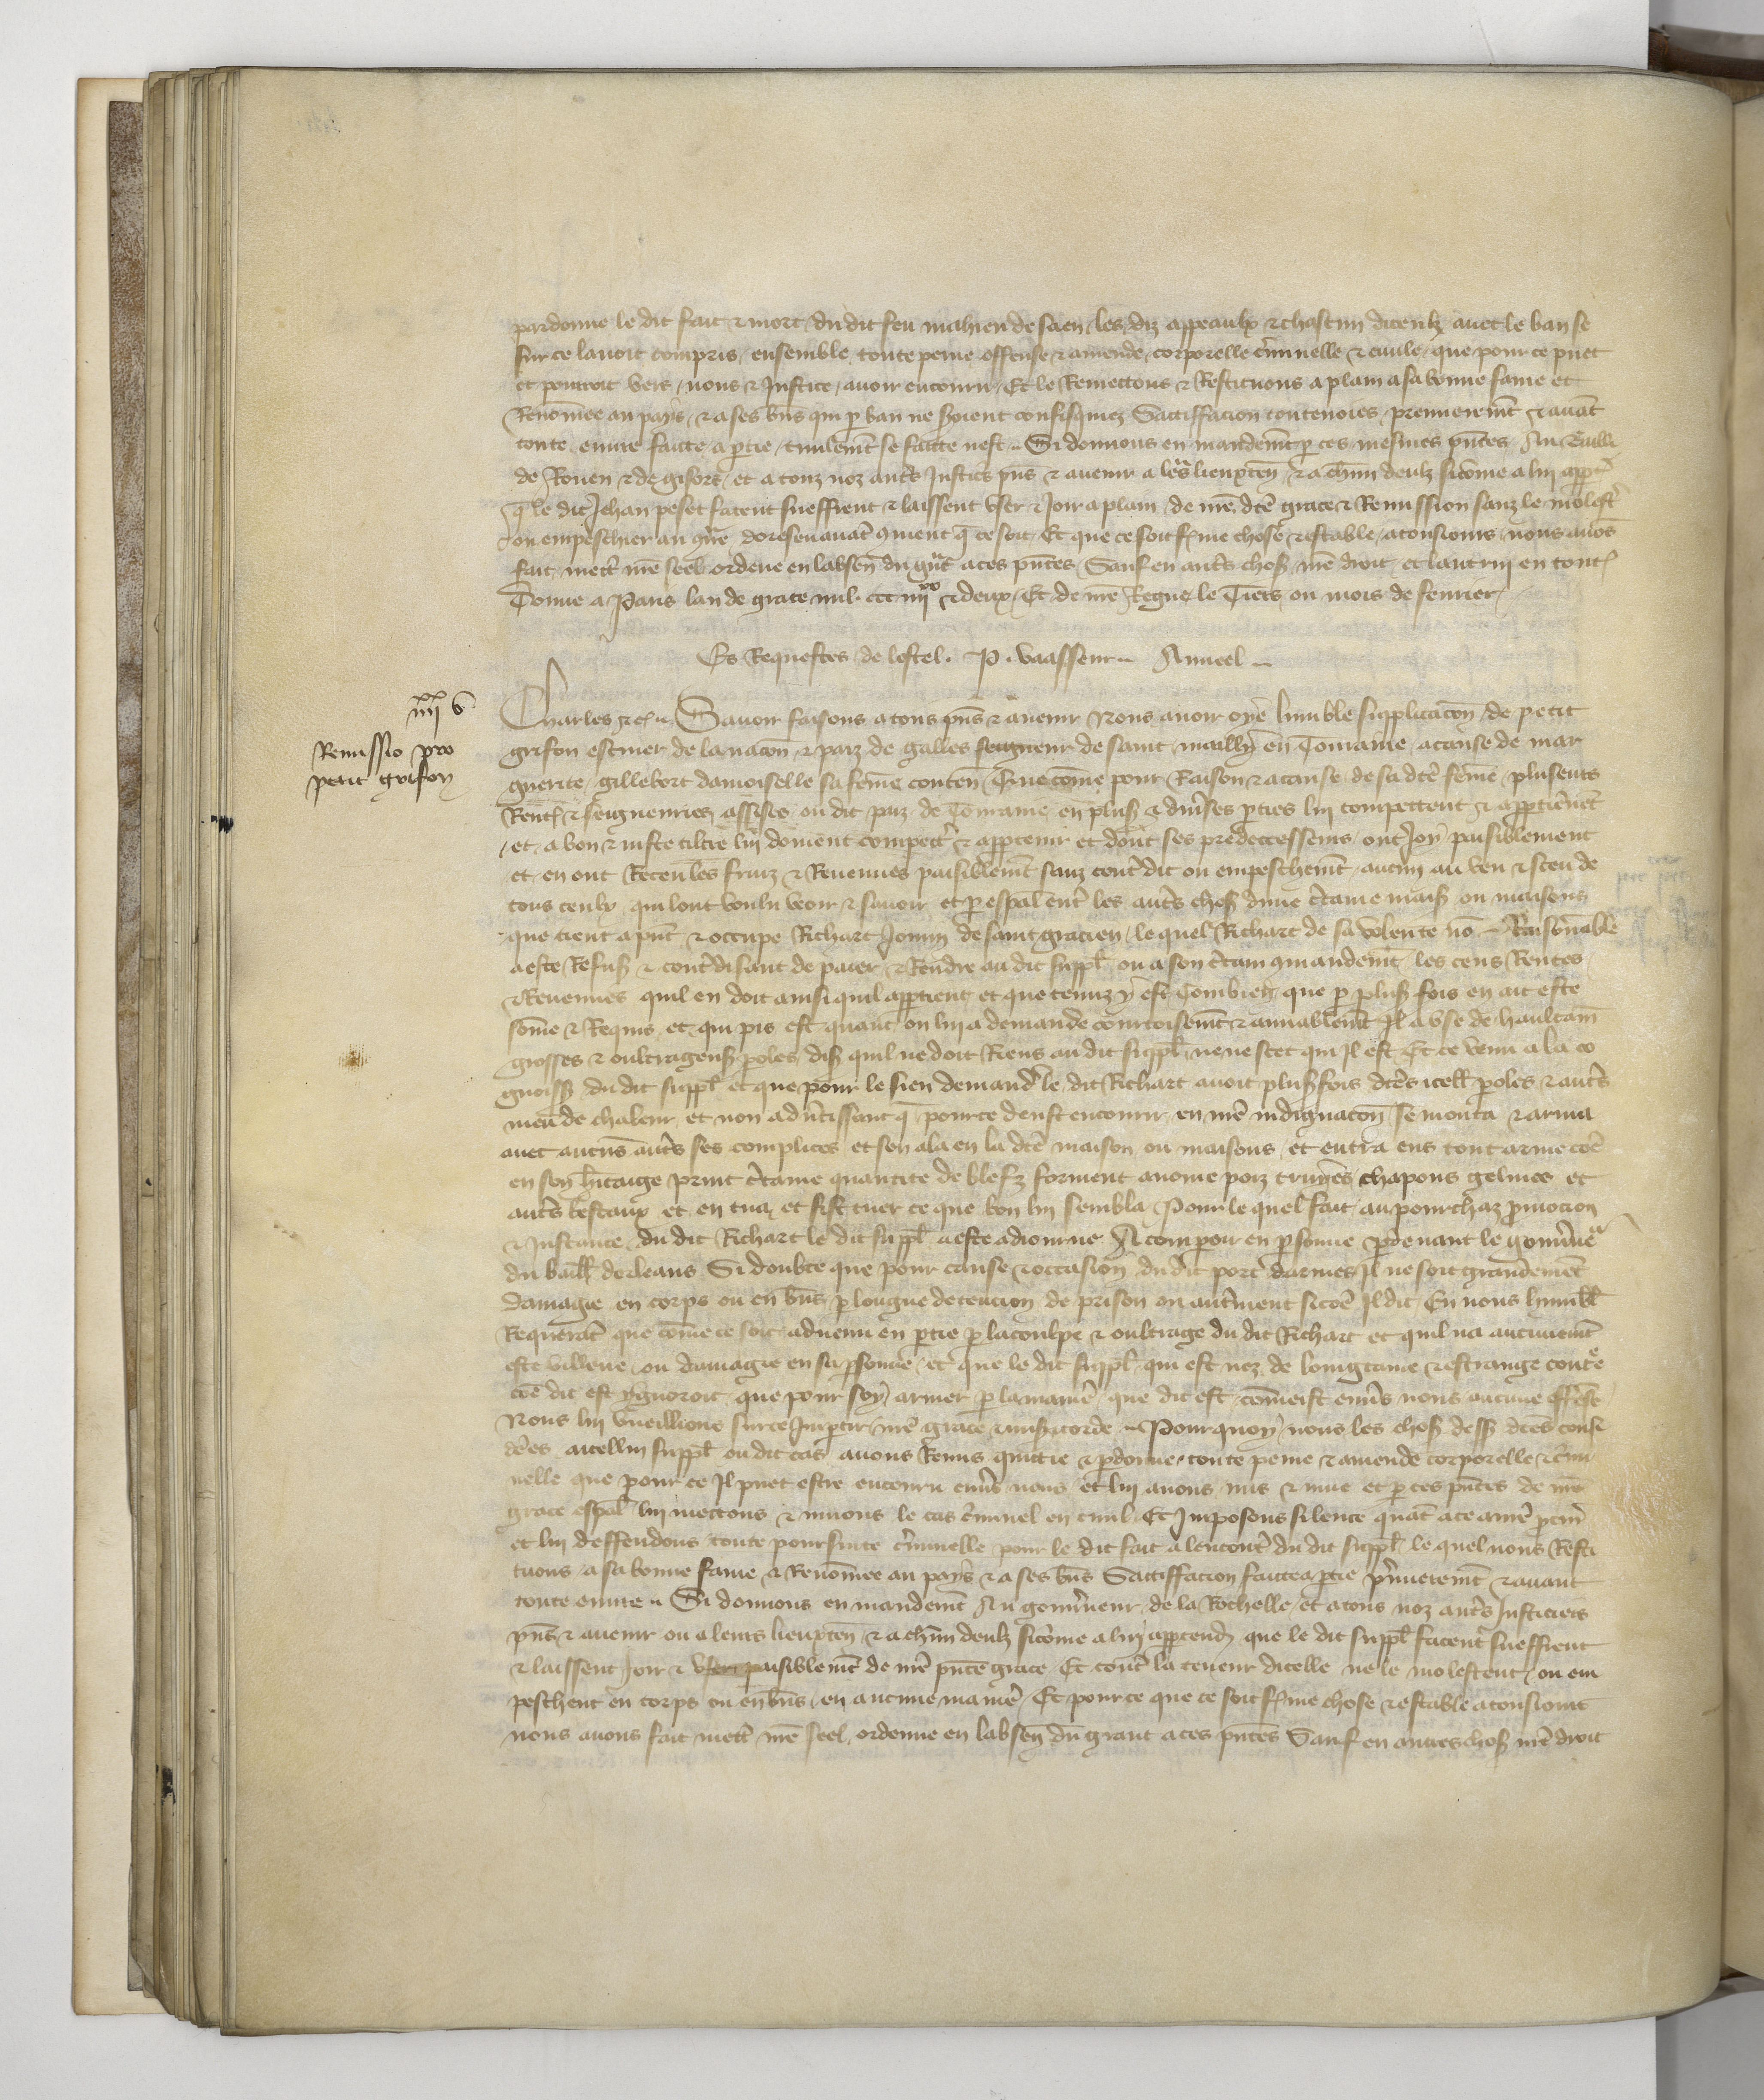 pardonne le dit fait & mort du dit feu mahieu de saen les diz appeaulx & chascun diceulx avec le ban se
sur ce lavoit compris ensemble toute peine offense & amende corporelle c'iminelle & civile que pour ce puet
et pourroit vers nous & Justice avoir encouru Et le Remectons & Restituons a plain a sa bonne fame et
Renom̄ee au pays & a ses bn̄s qui p ban ne seroient confisquiez Satisffacion contenoies premierem̄t & avāt
toute euvre faicte a ptie civilem̄t se faicte nest Si donnons en mandem̄t p ces mesmes pn̄tes Au bailli
de Rouen & de gisors et a touz noz aut's Justic's pn̄s & avenir a le's lieuxten̄ & a ch'un deulz sicōme a lui appt'
q̄ le dit Jehan peset facent sueffrent & laissent user & Joir a plain de n're dc̄e grace & Remission sanz le molest'
ou empeschier au 9t're doresenavāt 9ment q̄ ce soit Et que ce soit f'me chose & estable a tousiours nous avōs
fait mett' n're seel ordene en labsen̄ du g'nt a ces pn̄tes Sauf en aut's choses n're droit et lautruy en toutes
Donne a Paris lan de grace mil ccc iiii xx & deux Et de n're Regne le Tiers ou mois de fevrier
Es Requestes de lostel . P . vaasseur Anneel
iiii xx v
Remissio pro
petit grifon
Charles &c Savoir faisons a tous pn̄s & avenir Nous avoir oye lumble supplicacōn de petit
grifon escuier de la nacōn & paiz de galles seigneur de saint mailly en Touraine a cause de mar
guerite gillebert damoiselle sa feme conten̄ Que cōme pour Raison & a cause de sa dc̄e fem̄e plusieurs
Rentes & seigneuries assises ou dit paiz de Touraine en plus' & div'ses pties lui compettent & apptiēnēt
et a bon & iuste tiltre lui doivent compett' & apptenir et dont ses predecesseurs ont Joy paisiblement
et en ont Receu les fruiz & Revenues paisiblem̄t sanz cont'dit ou empeschem̄t aucun au veu & sceu de
tous ceulx qui lont voulu veoir & savoir et p espāl ent' les aut's choses dune c'taine mais' ou maisons
que tient a pn̄t & occupe Richart Jouin de saint gracien le quel Richart de sa volente nō Raisonable
a este Refus' & cont'disant de paier & Rendre au dit suppl' ou a son c'tain 9mandem̄t les cens Rentes
& Revenues quil en doit ainsi quil apptient et que tenuz y est Combien que p plus' fois en ait este
som̄e & Requis et qui pis est quant on lui a demande courtoisem̄t & amiablem̄t Il a use de haultain̄
grosses & oultrageus' poles dis' quil ne doit Riens au dit suppl' ne ne scet qui Il est Et ce venu a la co
gnoiss' du dit suppl' et que pour le sien demand' le dit Richart avoit plus' fois dc̄es icell' poles & aut's
meu de chaleur et non advertissant q̄ pour ce deust encourir en n're indignacōn se monta & arma
avec aucuns aut's ses complices et sen ala en la dc̄e maison ou maisons et entra ens tout arme cōe
en son h'itaige print c'taine quantite de blefz forment avoine poiz truyes chapons gelines et
aut's bestaux et en tua et fist tuer ce que bon lui sembla Pour le quel fait au pourchaz pmocion
& Instance du dit Richart le dit suppl' a este adiourne A comparoir en psonne pdevant le gouv'neur
du baill' dorleans Si doubte que pour cause & occasion du dit port darmes Il ne soit grandement
damagie en corps ou en bn̄s p longue detencion de prison ou aut'ment sicōe Il dit En nous humbl'
Requerāt que cōme ce soit advenu en ptie p la coulpe & oultrage du dit Richart et quil na aucunem̄t
este villene ou damagie en sa psonne et que le dit suppl' qui est nez de longtaine & estrange contree
cōe dit est ygnoroit que pour soy armer p la manie' que dit est com̄eist env's nous aucune offense
Nous lui vueillions sur ce Impartir n're grace & mis'icorde Pour quoy nous les choses dess' dc̄es consi
derees a icellui suppl' ou dit cas avons Remis quittie & pdonne toute peine & amende corporelle & c'imi
nelle que pour ce Il puet estre encouru env's nous et lui avons mis & mue et p ces pn̄tes de n're
grace espāl lui mectons & muons le cas c'iminel en civil Et Imposons silence quāt a ce a n're pc̄ur'
et lui deffendons toute poursuite c'iminelle pour le dit fait a lencont' du dit suppl' le quel nous Resti
tuons a sa bonne fame & Renom̄ee au pays & a ses bn̄s Satisffacion faicte a ptie p'mierem̄t & avant
toute euvre Si donnons en mandem̄t Au gouv'neur de la Rochelle et a tous noz aut's Justiciers
pn̄s & avenir ou a leurs lieuxten̄ & a ch'un deulz sicōme a lui apptendr' que le dit suppl' facent sueffrent
& laissent Joir & user paisiblem̄t de n're pn̄te grace Et cont' la teneur dicelle ne le molestent ou em
peschent en corps ou en bn̄s en aucune manie' Et pour ce que ce soit f'me chose & estable a tousiours
nous avons fait mett' n're seel ordenne en labsen̄ du grant a ces pn̄tes Sauf en autres choses n're droit